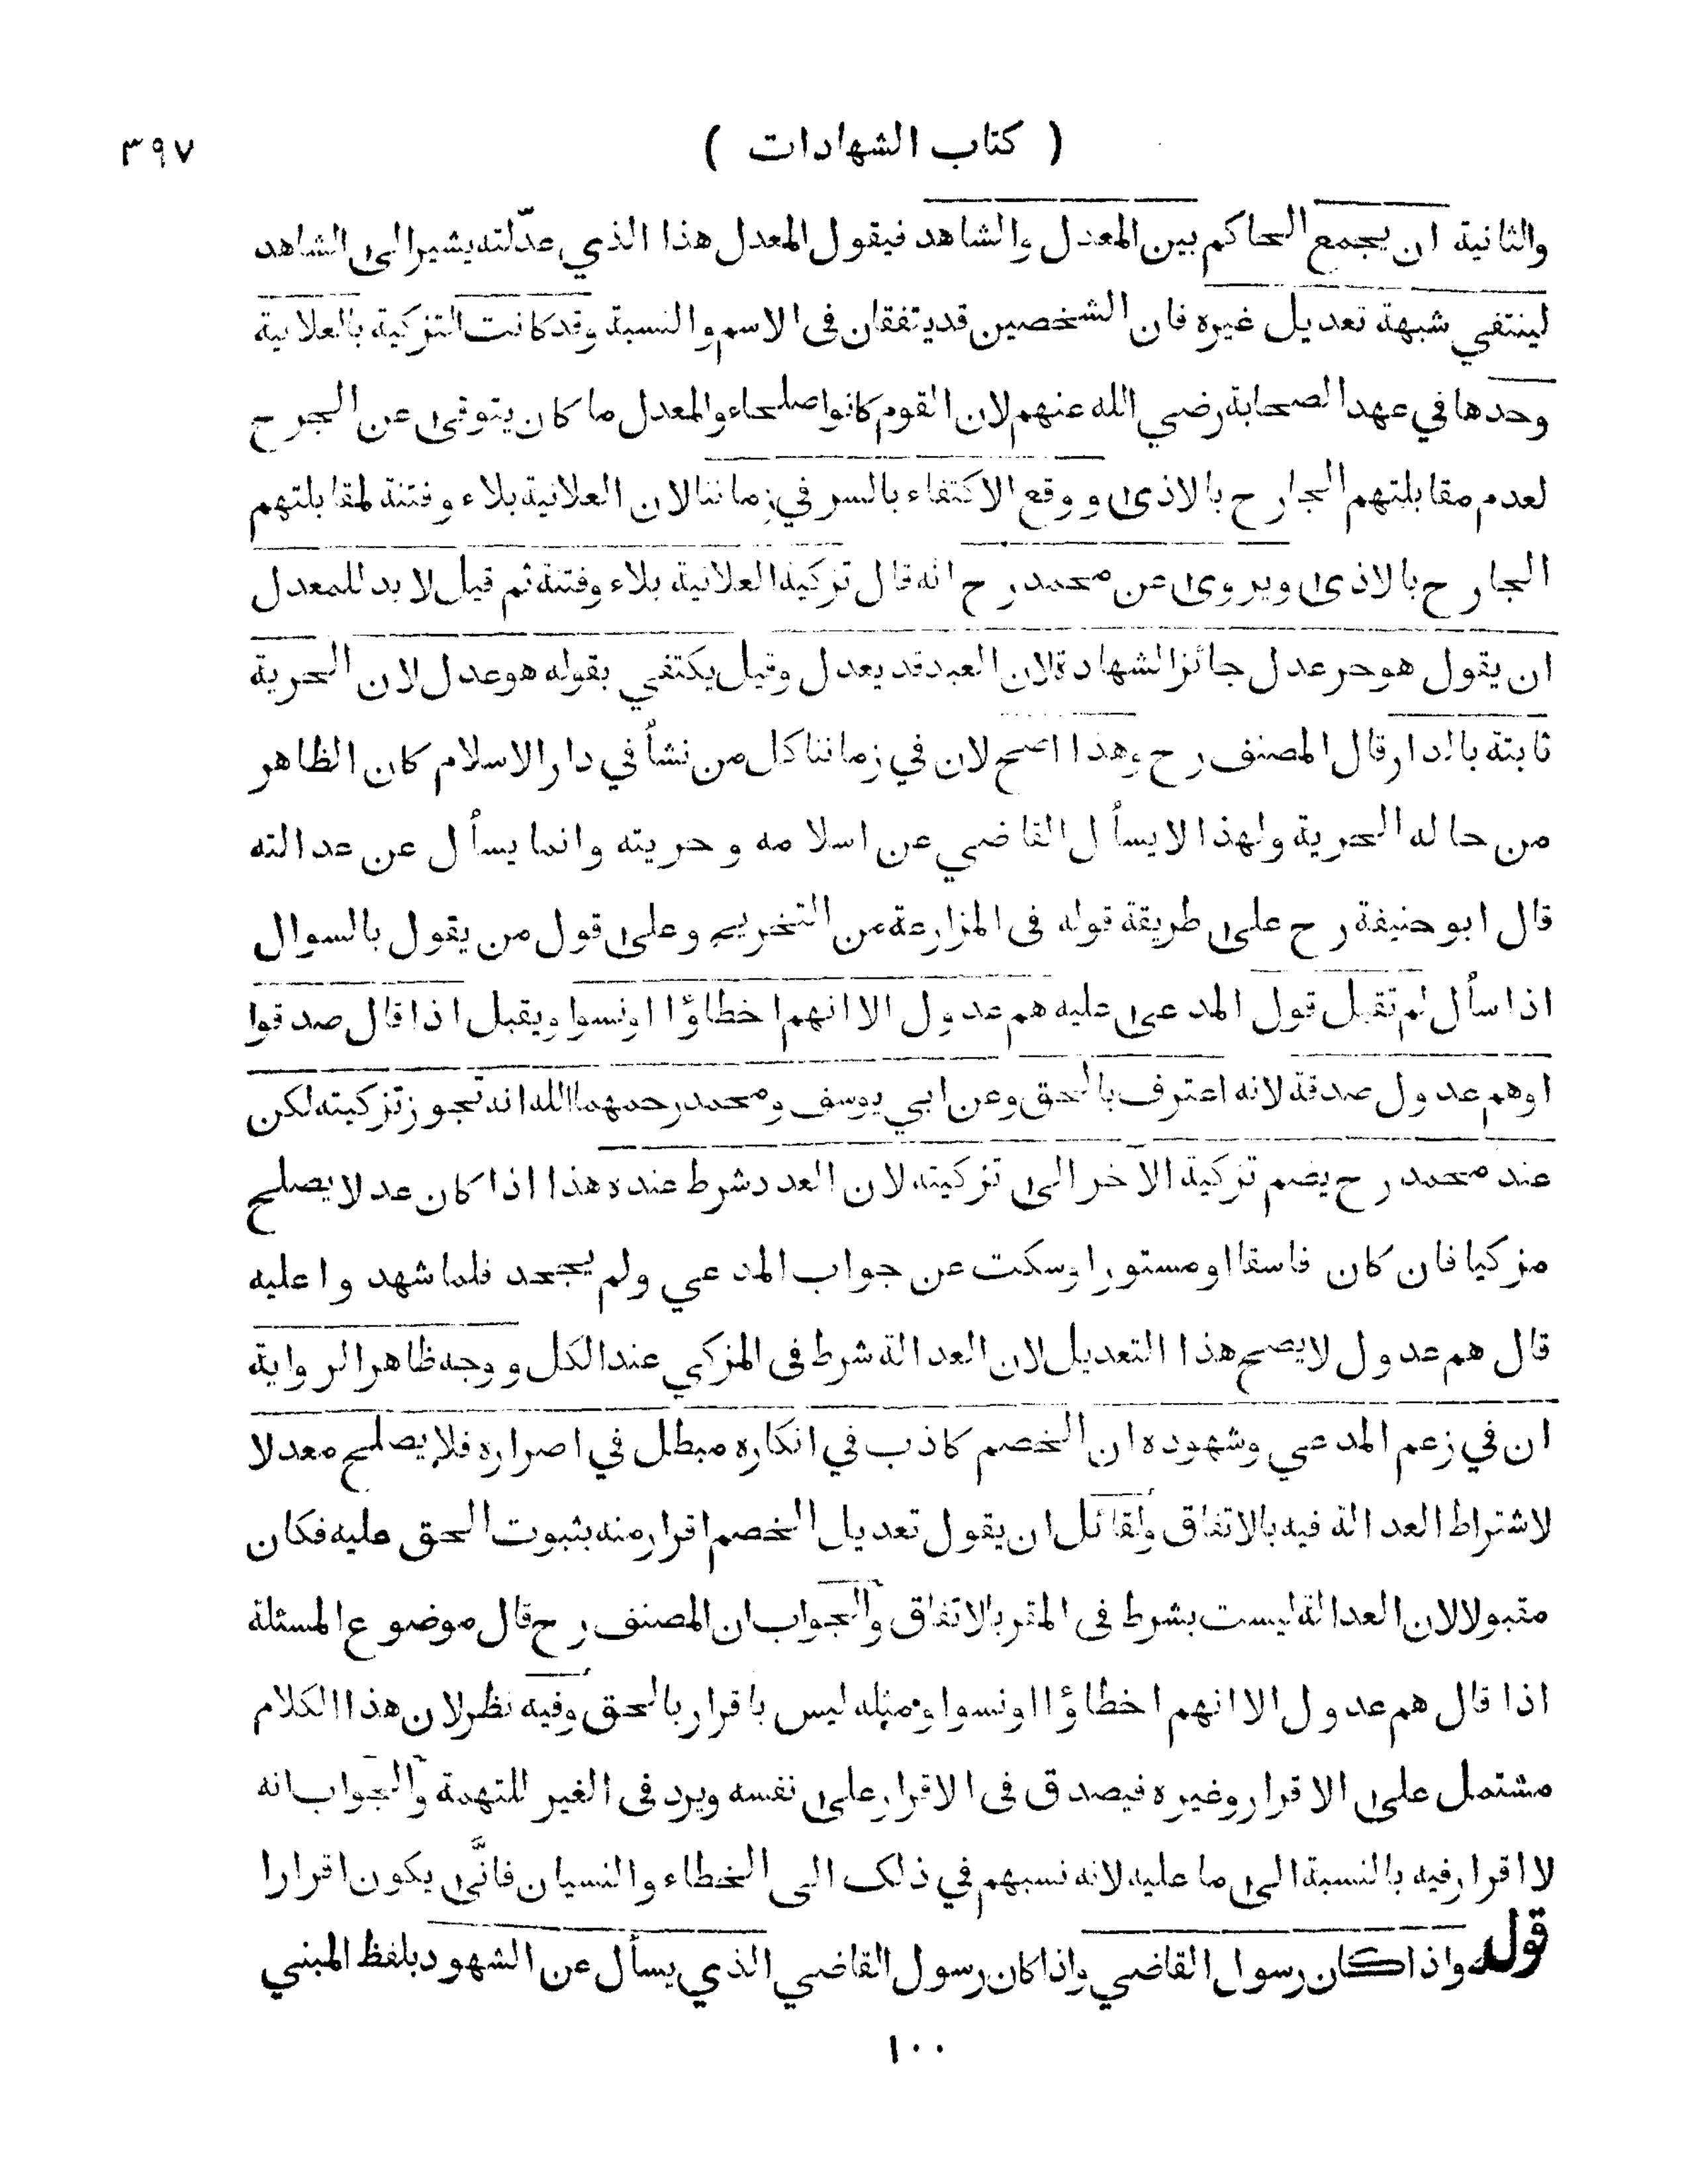 ( كتاب الشهادات )
٣٩٧
والثانية ان يجمع الحاكم بين المعدل والشاهد فيقول المعدل هذا الذي عدّلته يشير الى الشاهد
لينتفي شبهة تعديل غيره فان الشخصين قد يتفقان فى الاسم والنسبة وقد كانت التزكية بالعلانية
وحدها في عهد الصحابة رضي الله عنهم لان القوم كانوا صلحاء والمعدل ما كان يتوقى عن الجرح
لعدم مقابلتهم الجارح بالاذى ووقع الاكتفاء بالسر في زماننا لان العلانية بلاء وفتنة لمقابلتهم
الجارح بالاذى ويروى عن محمد رح انه قال تزكية العلانية بلاء وفتنة ثم قيل لا بد للمعدل
ان يقول هو حر عدل جائز الشهادة لان العبد قد يعدل وقيل يكتفي بقوله هو عدل لان الحرية
ثابتة بالدار قال المصنف رح وهذا اصح لان في زماننا كل من نشأ في دار الاسلام كان الظاهر
من حاله الحرية ولهذا لا يسأل القاضي عن اسلامه وحريته وانما يسأل عن عدالته
قال ابو حنيفة رح على طريقة قوله فى المزارعة من التخريج وعلى قول من يقول بالسوال
اذا سأل لم تقبل قول المدعى عليه هم عدول الا انهم اخطاؤا او نسوا ويقبل اذا قال صدقوا
او هم عدول صدقة لانه اعترف بالحق وعن ابي يوسف ومحمد رحمهما الله انه تجوز تزكيته لكن
عند محمد رح يضم تزكية الآخر الى تزكيته لان العدد شرط عنده هذا اذا كان عدلا يصلح
مزكيا فان كان فاسقا او مستورا وسكت عن جواب المدعي ولم يجحد فلما شهدوا عليه
قال هم عدول لا يصح هذا التعديل لان العدالة شرط فى المزكي عند الكل ووجه ظاهر الرواية
ان في زعم المدعي وشهوده ان الخصم كاذب في انكاره مبطل في اصراره فلا يصلح معدلا
لاشتراط العدالة فيه بالاتفاق ولقائل ان يقول تعديل الخصم اقرار منه بثبوت الحق عليه فكان
مقبولا لان العدالة ليست بشرط فى المقر بالاتفاق والجواب ان المصنف رح قال موضوع المسئلة
اذا قال هم عدول الا انهم اخطاؤا او نسوا ومثله ليس باقرار بالحق وفيه نظر لان هذا الكلام
مشتمل على الاقرار وغيره فيصدق فى الاقرار على نفسه ويرد فى الغير للتهمة والجواب انه
لا اقرار فيه بالنسبة الى ما عليه لانه نسبهم في ذلك الى الخطاء والنسيان فانّى يكون اقرارا
قوله واذا كان رسول القاضي واذا كان رسول القاضي الذي يسأل عن الشهود بلفظ المبني
١٠٠